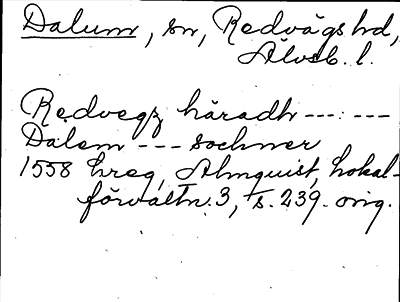 Dalum, sn, Redvägs hd,
Älvsb. l.
Redvegz häradh ---:---
Dalem --- sochner
1558 hreg, Almquist, Lokal-
förvaltn. 3, s. 239. orig.